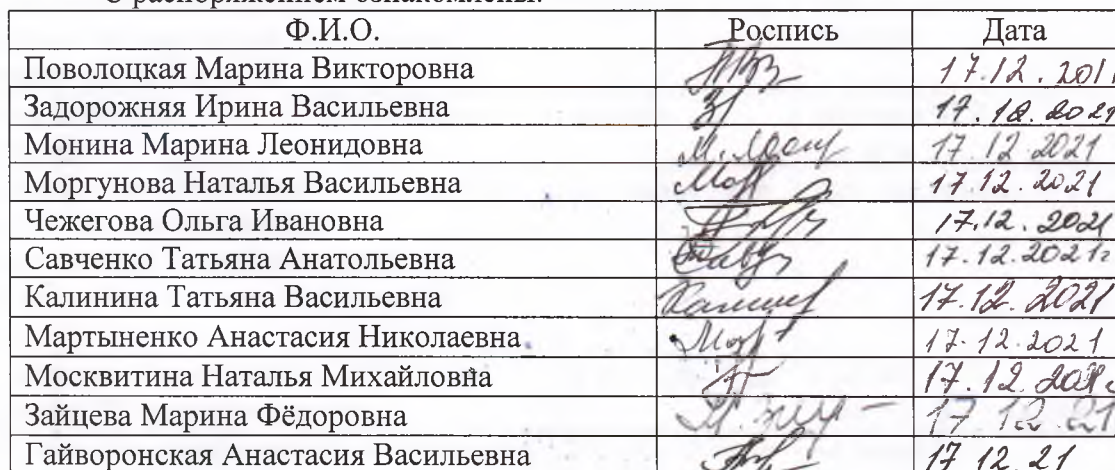 С распоряжением ознакомлены:
Ф.И.О. Роспись Дата
Поволоцкая Марина Викторовна 17.12.2011
Задорожняя Ирина Васильевна 17.12.2021
Монина Марина Леонидовна 17.12.2021
Моргунова Наталья Васильевна 17.12.2021
Чежегова Ольга Ивановна 17.12.2021
Савченко Татьяна Анатольевна 17.12.2021г
Калинина Татьяна Васильевна 17.12.2021
Мартыненко Анастасия Николаевна 17.12.2021
Москвитина Наталья Михайловна 17.12.
Зайцева Марина Фёдоровна 17.12.21
Гайворонская Анастасия Васильевна 17.12.21